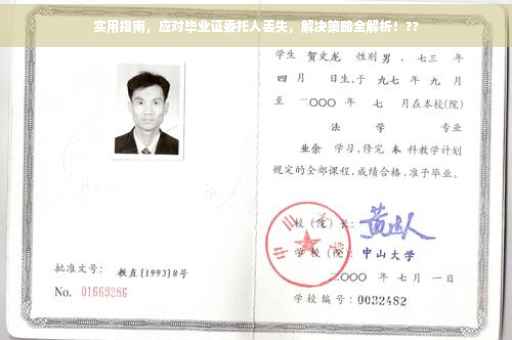 实用指南，应对毕业证委托人丢失，解决策略全解析！??
学生 贺文龙 性别 男，七三 年
四 月 日生，于 九七 年 九 月
至 二〇〇〇 年 七 月在本校(院)
法 学 专业
业余 学习，修完 本 科教学计划
规定的全部课程，成绩合格，准予毕业。
校（院）长：
学校（院）：中山大学
二〇〇〇 年 七 月 一 日
批准文号：教直[1993]8号
No. 01669286
学校编号：0032482